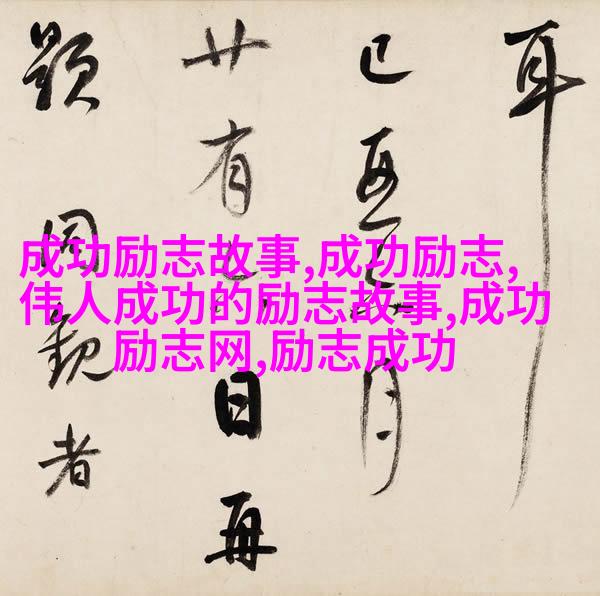 成功励志故事,成功励志,
伟人成功的励志故事,成功
励志网,励志成功
耳
月
廿有日再
題同觀者